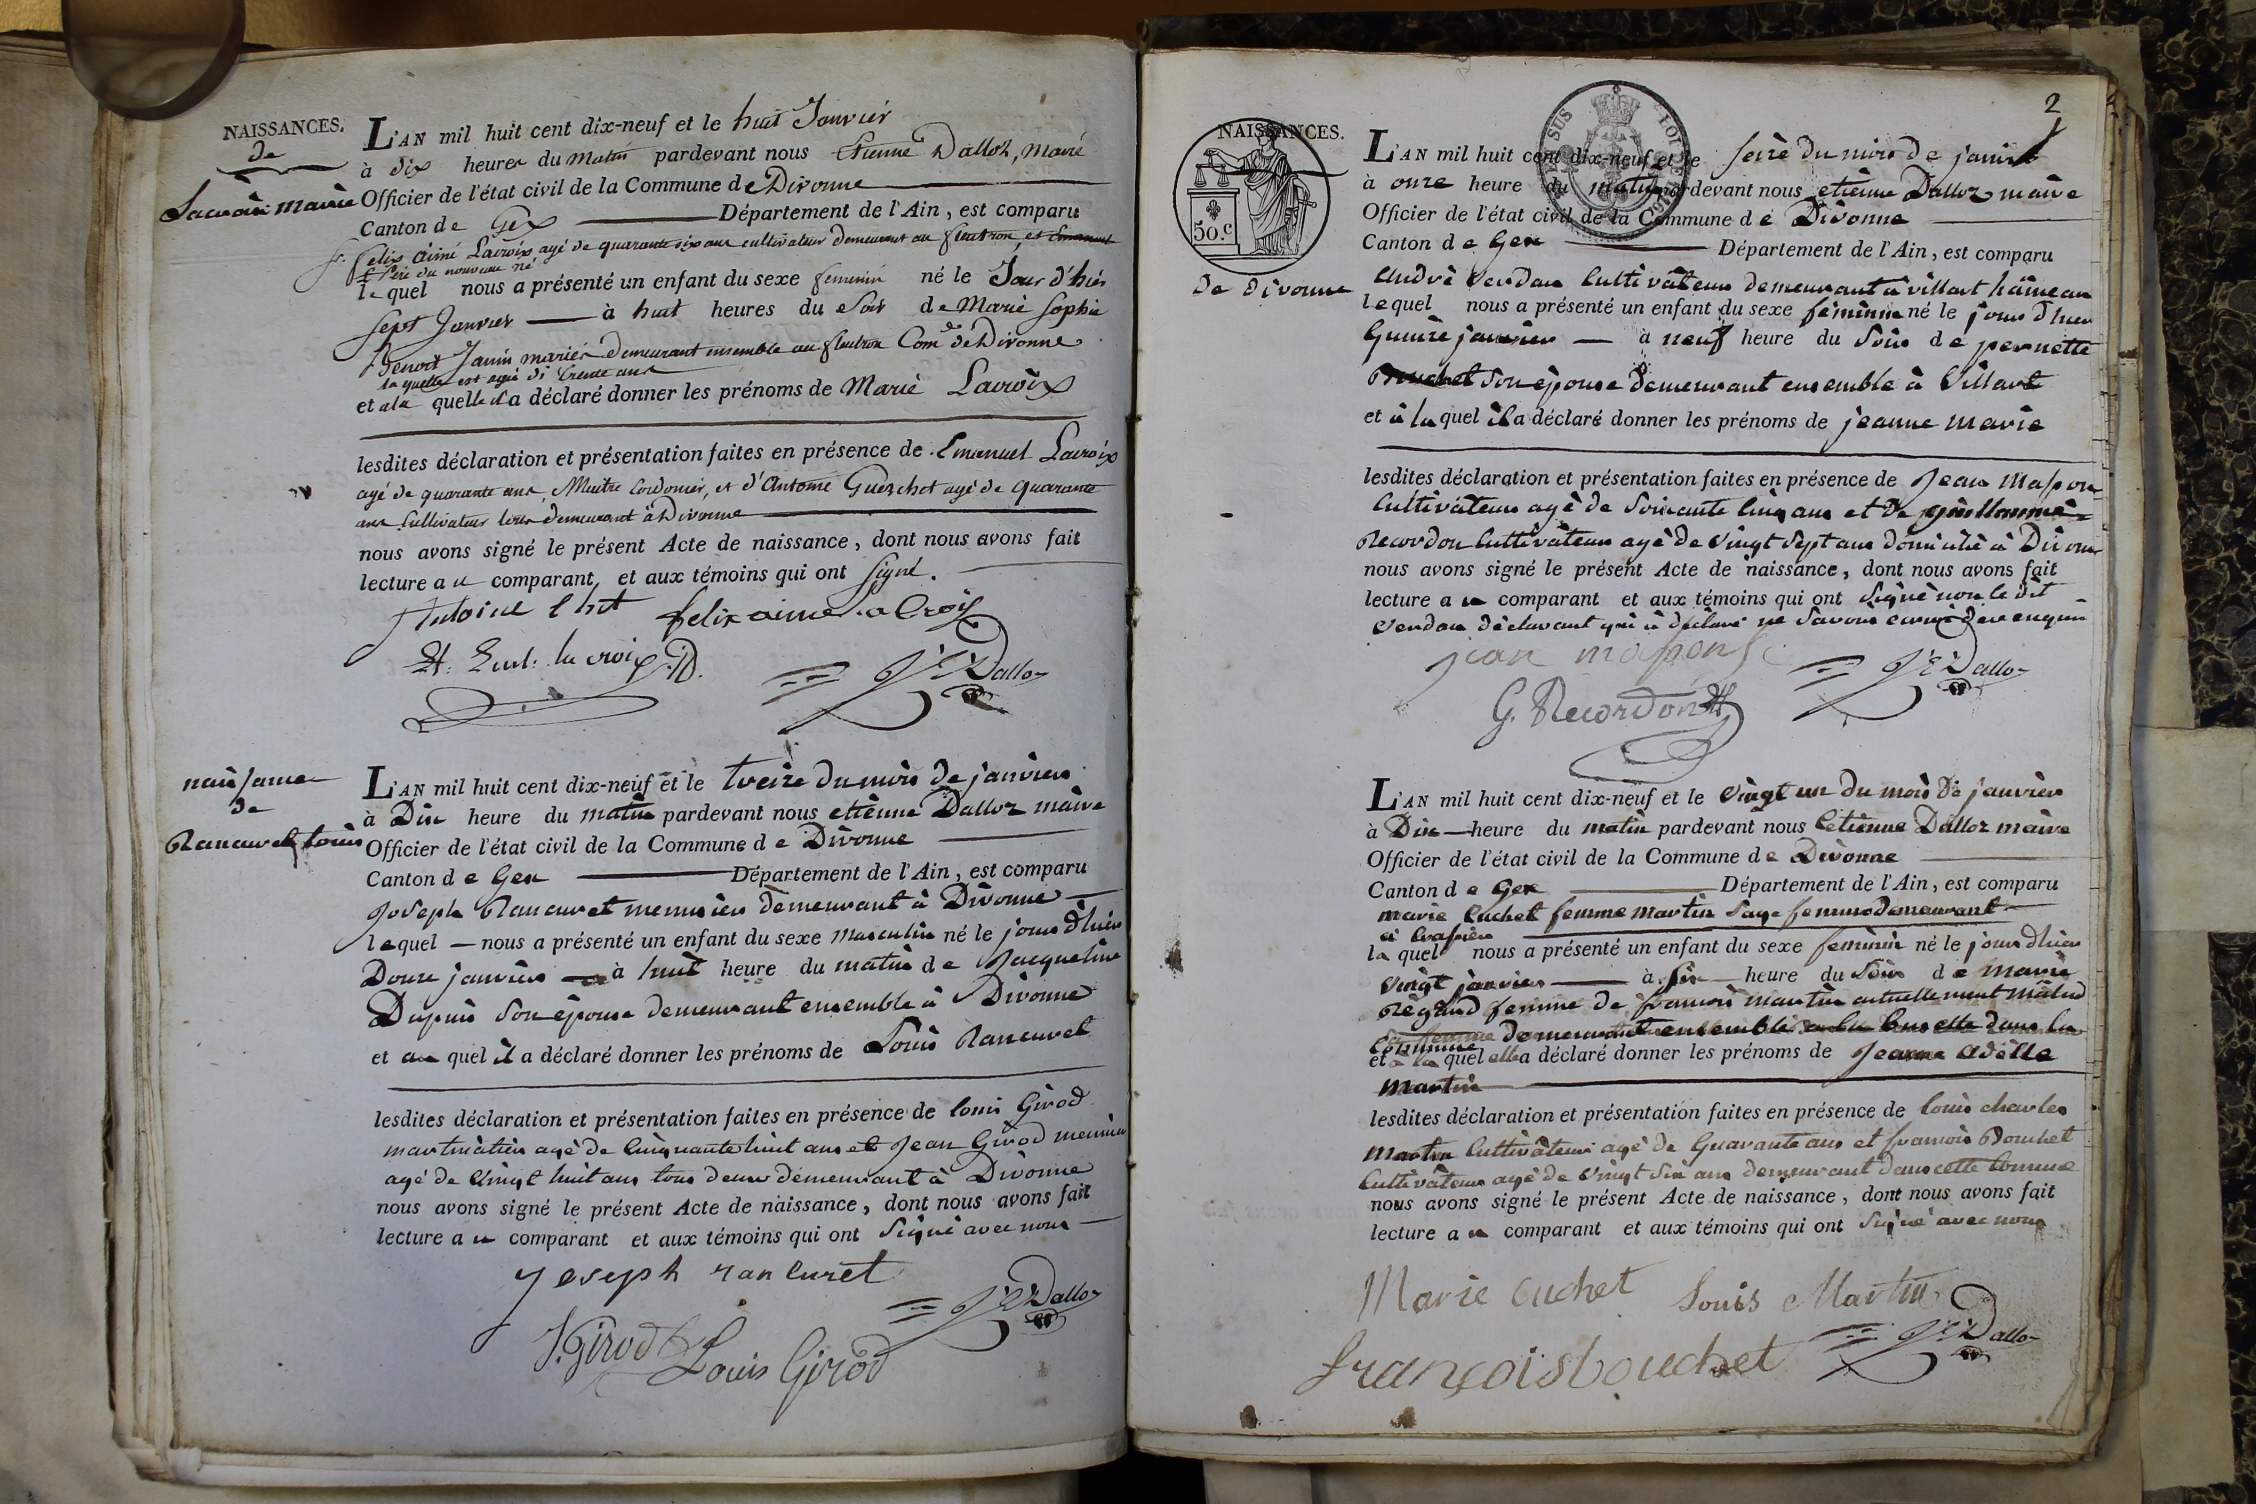 NAISSANCES.
de
Lacroix marie
L'AN mil huit cent dix-neuf et le huit Janvier
à dix heures du Matin pardevant nous Etienne Dalloz, Maire
Officier de l'état civil de la Commune de Divonne
Canton de Gex Département de l'Ain, est comparu
felix aimé Lacroix agé de quarante six ans cultivateur demeurant au fleutron, et Emanuel
père du nouveau né
lequel nous a présenté un enfant du sexe feminin né le Jour d'hier
sept Janvier à huit heures du Soir de Marie Sophie
Benoit Janin mariés demeurant ensemble au fleutron Com. de Divonne
la quelle est agée de trente ans
et a la quelle il a déclaré donner les prénoms de Marie Lacroix
lesdites déclaration et présentation faites en présence de Emanuel Lacroix
agé de quarante ans, Maitre Cordonier, et d'Antoine agé de quarante
ans Cultivateur tous demeurant à Divonne
nous avons signé le présent Acte de naissance, dont nous avons fait
lecture au comparant et aux témoins qui ont Signé.
Antoine felix aime la Croix
la croix
Dalloz
naissance
de
Rancuret louis
L'AN mil huit cent dix-neuf et le treize du mois de janvier
à Dix heure du matin pardevant nous etienne Dalloz maire
Officier de l'état civil de la Commune de Divonne
Canton de Gex Département de l'Ain, est comparu
Joseph Rancuret menusier demeurant à Divonne
lequel nous a présenté un enfant du sexe masculin né le jour d'hier
Douze janvier à huit heure du matin de Jacqueline
Dupuis Son épouse demeurant ensemble à Divonne
et au quel il a déclaré donner les prénoms de Louis Rancuret
lesdites déclaration et présentation faites en présence de louis Girod
agé de Cinquante huit ans et Jean Girod menusier
agé de Vingt huit ans tous deux demeurant à Divonne
nous avons signé le présent Acte de naissance, dont nous avons fait
lecture au comparant et aux témoins qui ont Signé avec nous
Joseph rancuret
Dalloz
J. Girod
Louis Girod
2
NAISSANCES.
50.c
de divonne
L'AN mil huit cent dix-neuf et le seize du mois de janvier
à onze heure du matin pardevant nous etienne Dalloz maire
Officier de l'état civil de la Commune de Divonne
Canton de Gex Département de l'Ain, est comparu
andré Verdan Cultivateur demeurant à villart hameau
lequel nous a présenté un enfant du sexe féminin né le jour d'hier
Quinze janvier à neuf heure du Soir de pernette
Bouchet son épouse demeurant ensemble à Villart
et à la quel il a déclaré donner les prénoms de jeanne marie
lesdites déclaration et présentation faites en présence de Jean Masson
Cultivateur agé de Soixante Cinq ans et de guillaume
Recordon Cultivateur agé de vingt sept ans domicilié à Divonne
nous avons signé le présent Acte de naissance, dont nous avons fait
lecture au comparant et aux témoins qui ont signé non le dit
Verdan déclarant qui a déclaré ne Savoir écrire de ce enquis
jean masson
Dalloz
G. Recordon
L'AN mil huit cent dix-neuf et le vingt un du mois de janvier
à Dix heure du matin pardevant nous Etienne Dalloz maire
Officier de l'état civil de la Commune de Divonne
Canton de Gex Département de l'Ain, est comparu
marie Cuchet femme martin Sage femme demeurant
à Crassier
la quel nous a présenté un enfant du sexe feminin né le jour d'hier
vingt janvier à six heure du Soir de marie
Régard femme de françois martin actuellement malad
demeurant ensemble à la dans la
Commune
et à la quel elle a déclaré donner les prénoms de Jeanne Adélle
Martin
lesdites déclaration et présentation faites en présence de louis charles
Martin Cultivateur agé de Quarante ans et françois Bouchet
Cultivateur agé de vingt Six ans demeurant dans cette Comune
nous avons signé le présent Acte de naissance, dont nous avons fait
lecture au comparant et aux témoins qui ont Signé avec nous
Marie Cuchet Louis Martin
Dalloz
françois bouchet